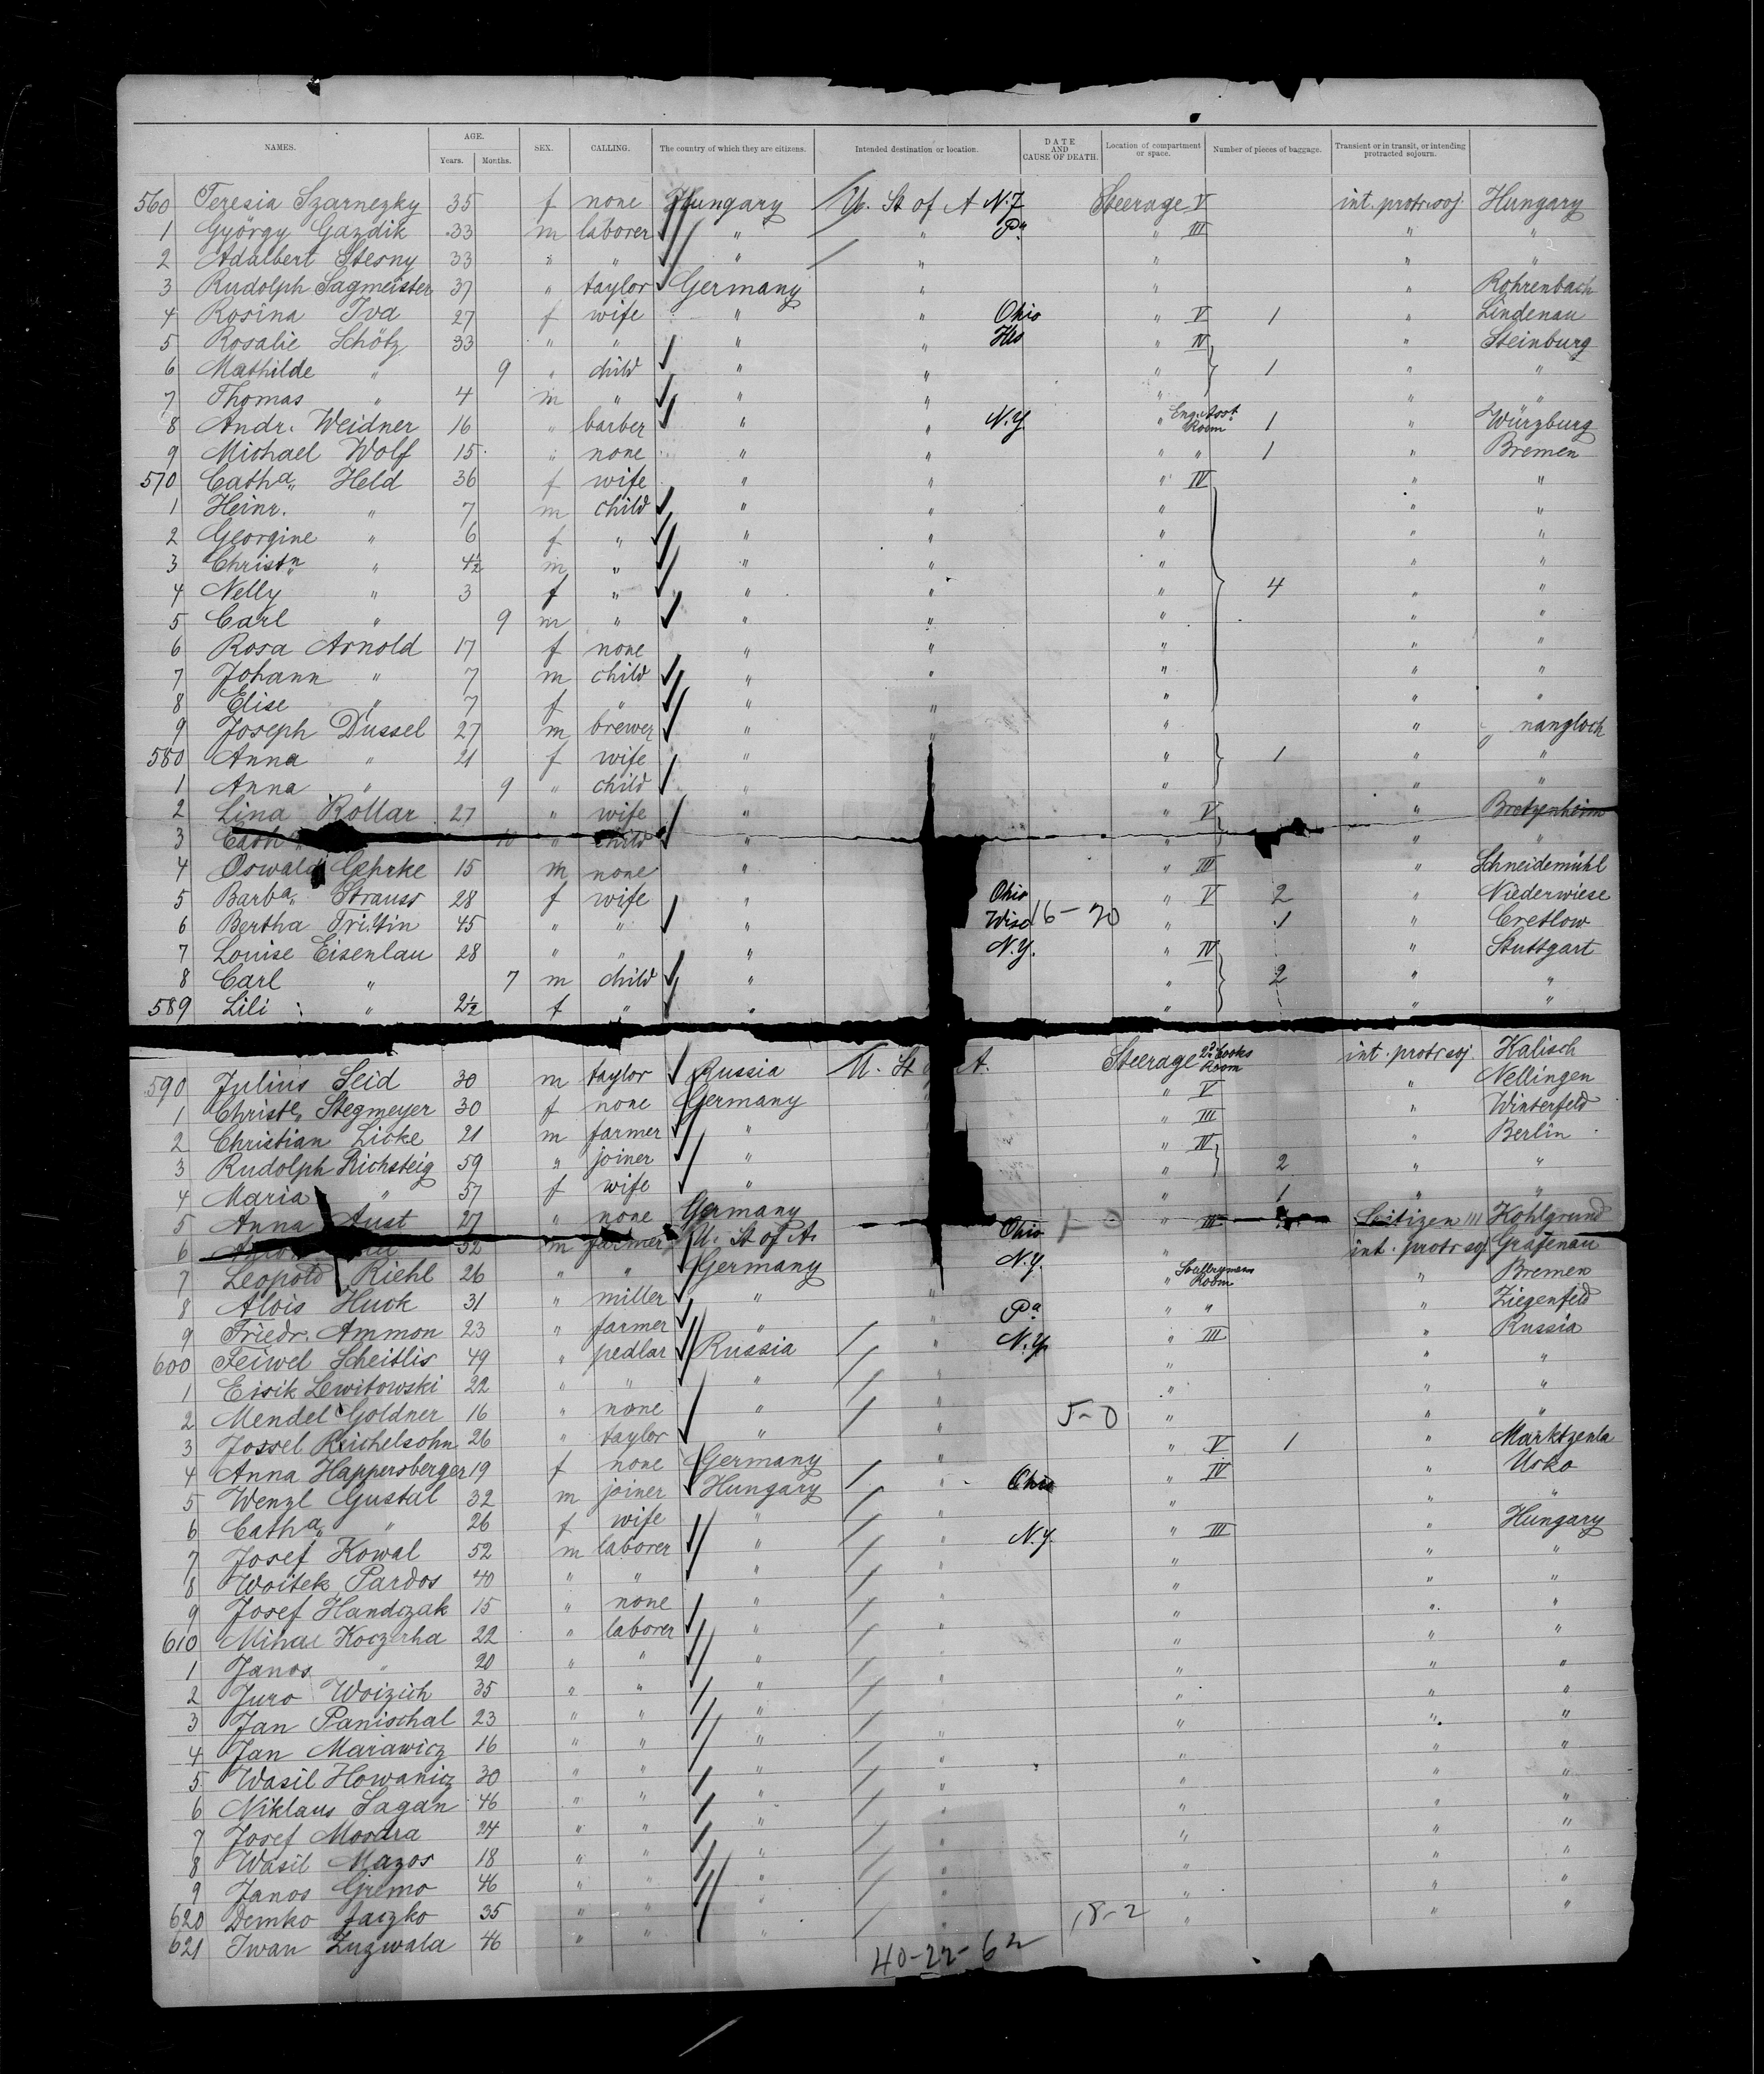 NAMES. AGE. Years. Months. SEX. CALLING. The country of which they are citizens. Intended destination or location. DATE AND CAUSE OF DEATH. Location of compartment or space. Number of pieces of baggage. Transient or in transit, or intending protracted sojourn.
560 Teresia Szarnezky 35 f none Hungary U. St of A N.J. Steerage V int. protr. soj. Hungary
1 György Gazdik 33 m laborer " " Pa " III " "
2 Adalbert Stesny 33 " " " " " " "
3 Rudolph Sagmeister 37 " taylor Germany " " " Rohrenbach
4 Rosina Iva 27 f wife " " Ohio " V 1 " Lindenau
5 Rosalie Schötz 33 " " " " Ills " IV " Steinburg
6 Mathilde " 9 " child " " " 1 " "
7 Thomas " 4 m " " " " " "
8 Andr. Weidner 16 " barber " " N.Y. " Eng. Asst. Room 1 " Würzburg
9 Michael Wolf 15 " none " " " " 1 " Bremen
570 Catha Held 36 f wife " " " IV " "
1 Heinr. " 7 m child " " " " "
2 Georgine " 6 f " " " " " "
3 Christn " 4½ m " " " " " "
4 Nelly " 3 f " " " " 4 " "
5 Carl " 9 m " " " " " "
6 Rosa Arnold 17 f none " " " " "
7 Johann " 7 m child " " " " "
8 Elise " 7 f " " " " " "
9 Joseph Dussel 27 m brewer " " " " nangloch
580 Anna " 21 f wife " " 1 " "
1 Anna " 9 " child " " " "
2 Lina Kollar 27 " wife " " V " Bretzenheim
3 Cath 10 " child " " " "
4 Oswald Gehrke 15 m none " " III " Schneidemühl
5 Barba Strauss 28 f wife " Ohio " V 2 " Niederwiese
6 Bertha Trittin 45 " " " Wisc 16-20 " 1 " Cretlow
7 Louise Eisenlau 28 " " " N.Y. " IV " Stuttgart
8 Carl " 7 m child " " 2 " "
589 Lili " 2½ f " " " " "
590 Julius Seid 30 m taylor Russia U. St A. Steerage 2d Cooks Room int. protr soj. Kalisch
1 Christe Stegmeyer 30 f none Germany " V " Nellingen
2 Christian Licke 21 m farmer " " III " Winterfeld
3 Rudolph Richsteig 59 " joiner " " IV " Berlin
4 Maria " 57 f wife " " 2 " "
5 Anna Aust 27 " none Germany " 1 " "
6 52 m farmer U. St of A. Ohio " III Citizen Kohlgrund
7 Leopold Riehl 26 " " Germany N.Y. " int. protr soj. Grafenau
8 Alois Huck 31 " miller " " " Room " Bremen
9 Friedr. Ammon 23 " farmer " Pa " " " Ziegenfeld
600 Feiwel Scheitlis 49 " pedlar Russia " N.Y. " III " Russia
1 Eisik Lewitowski 22 " " " " " " "
2 Mendel Goldner 16 " none " " " " "
3 Jossel Reichelsohn 26 " taylor " " 5-0 " " "
4 Anna Happersberger 19 f none Germany " " V 1 " Marktzenla
5 Wenzl Gustal 32 m joiner Hungary " Ohio " IV " Usko
6 Catha " 26 f wife " " " " "
7 Josef Kowal 52 m laborer " " N.Y. " III " Hungary
8 Woitek Pardos 40 " " " " " " "
9 Josef Handczak 15 " none " " " " "
610 Mihal Koczerha 22 " laborer " " " " "
1 Janos " 20 " " " " " " "
2 Juro Woizich 35 " " " " " " "
3 Jan Panischal 23 " " " " " " "
4 Jan Marawicz 16 " " " " " " "
5 Wasil Howanicz 30 " " " " " " "
6 Niklaus Sagan 46 " " " " " " "
7 Josef Mosdra 24 " " " " " " "
8 Wasil Mazos 18 " " " " " " "
9 Janos Gremo 46 " " " " " " "
620 Demko Jaczko 35 " " " " 18-2 " " "
621 Iwan Zuzwala 46 " " " "
40-22-62